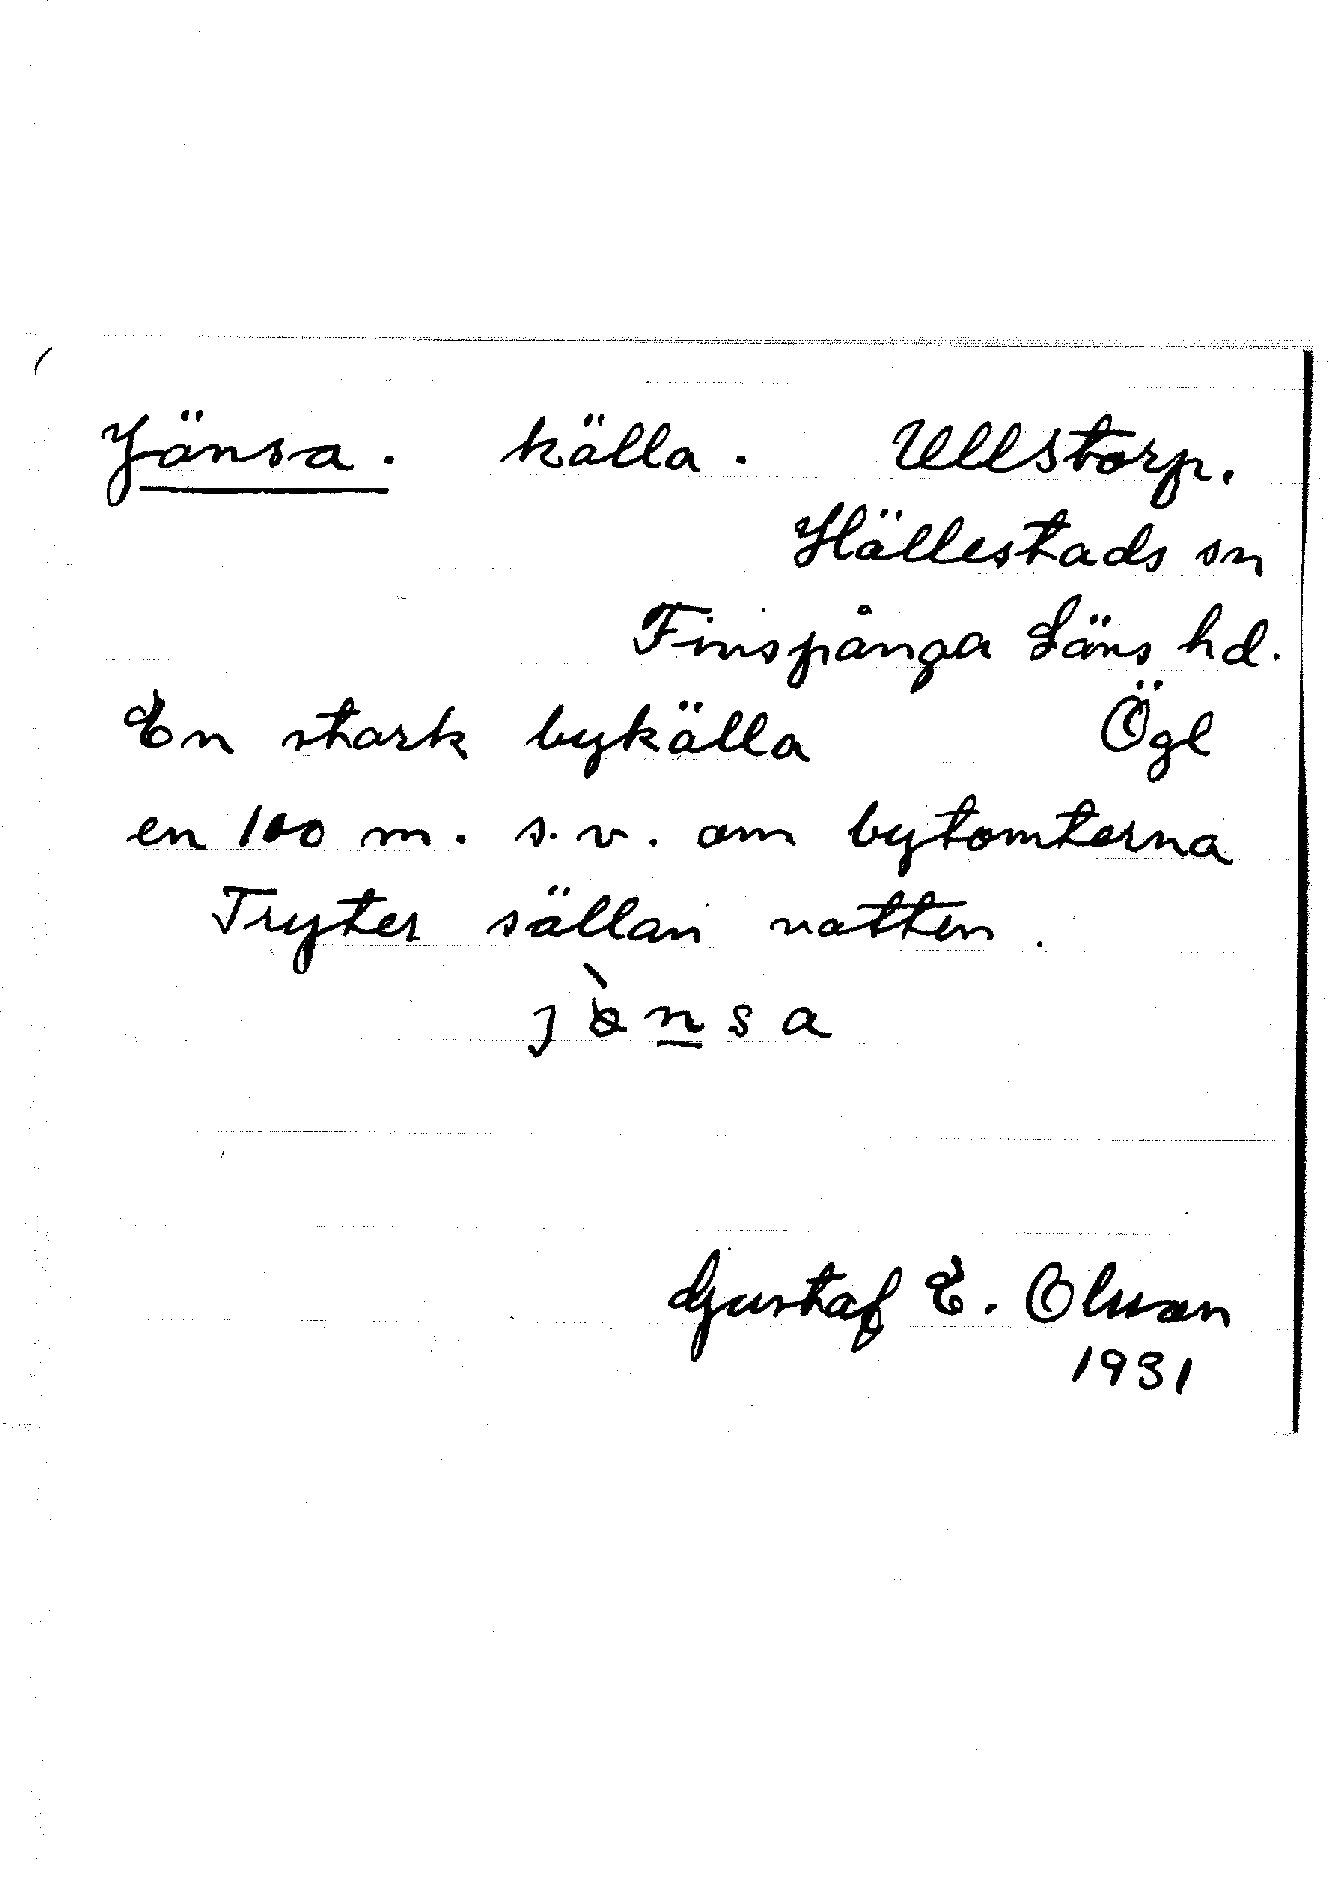 Jänsa. källa. Ullstorp.
Hällestads sn
Finspånga Läns hd.
En stark bykälla Ögl
en 100 m. s.v. om bytomterna
Tryter sällan vatten.
jènsa
Gustaf E. Olsson
1931